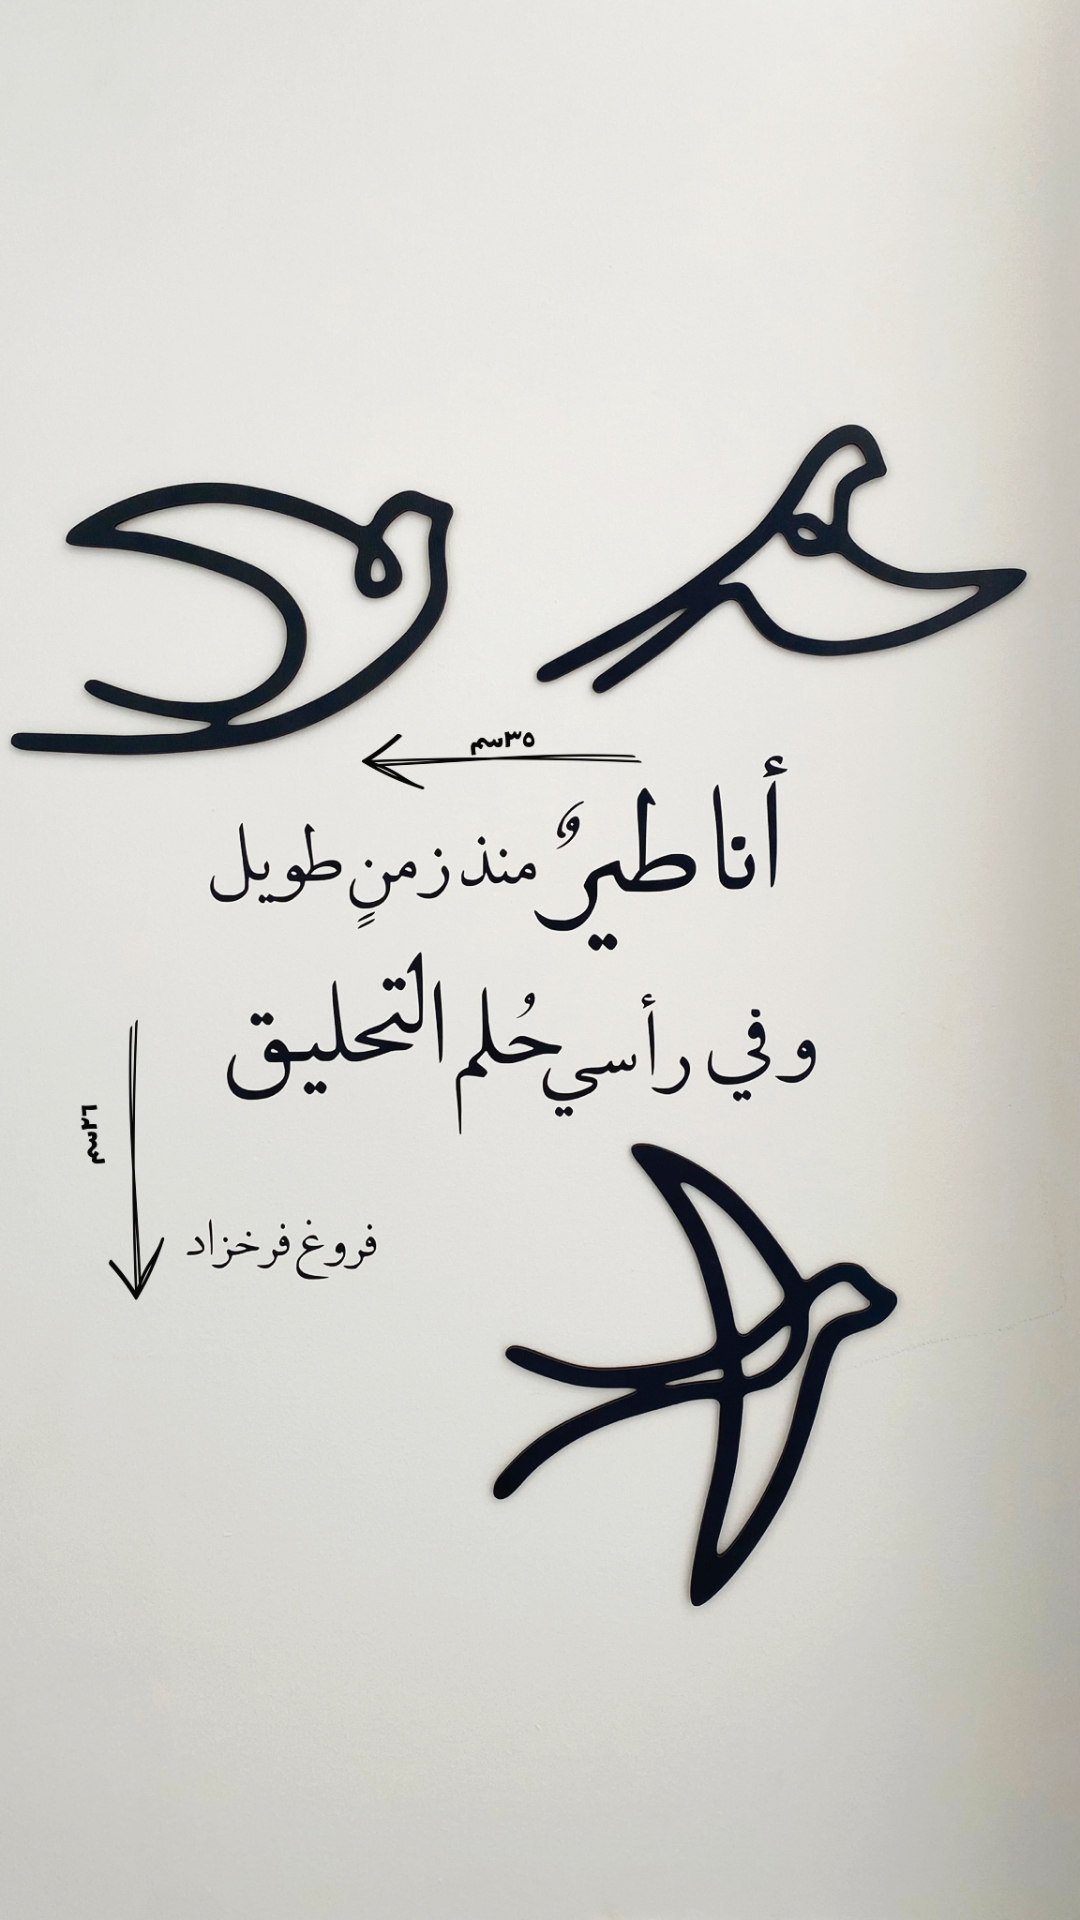 ٣٥سم
أنا طيرٌ منذ زمنٍ طويل
وفي رأسي حُلم التحليق
٢٦سم
فروغ فرخزاد